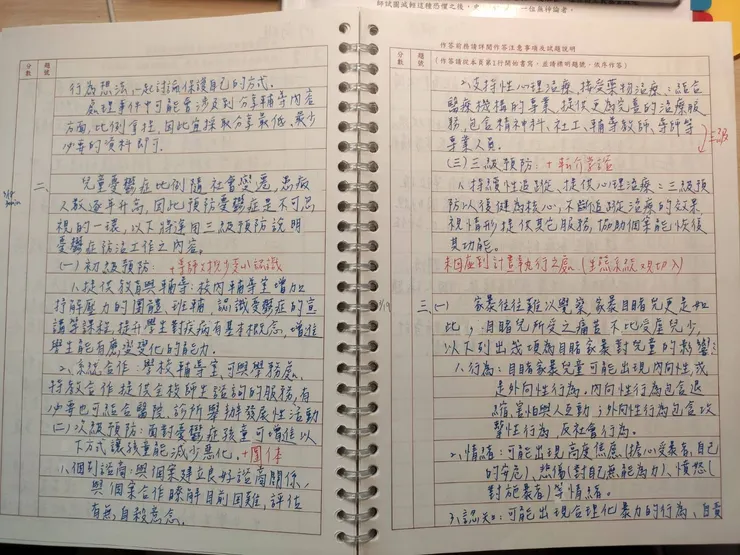 師試圖減輕這種恐懼之後,
一位無神論者。
分數
題號
行為想法,一起討論保護自己的方式。
處理事件中可能會涉及到分享輔導內容
方面,比例拿捏,因此宜採取分享最低、最少
必要的資料即可。
二、
兒童憂鬱症比例隨社會變遷,患病
人數逐年升高,因此預防憂鬱症是不可忽
視的一環,以下將運用三級預防說明
憂鬱症防治工作之內容。
(一)初級預防:
1.提供教育與輔導:校內輔導室增加
抒解壓力的團體、班輔、認識憂鬱症的宣
講等課程,提升學生對疾病有基本概念,增進
學生能有應變變化的能力。
2.系統合作:學校輔導室可與學務處、
特教合作提供全校師生諮詢的服務,有
必要也可結合醫院、診所舉辦發展性活動
(二)次級預防:面對憂鬱症孩童可增進以
下方式讓孩童能減少惡化。+團體
1.個別諮商:與個案建立良好諮商關係,
與個案合作瞭解目前困難,評估
有無自殺意念。
作答前務請詳閱作答注意事項及試題說明
分數
題號
(作答請從本頁第1行開始書寫,並請標明題號,依序作答)
2.支持性心理治療、接受藥物治療:結合
醫療機構的專業,提供更為完善的治療服
務,包含精神科、社工、輔導教師、導師等
專業人員。
(三)三級預防:+轉介資源
1.持續性追蹤、提供心理治療:三級預
防以復健為核心,不斷追蹤治療的效果,
視情形提供其它服務,協助個案能恢復
其功能。
三、(一)
家暴往往難以覺察,家暴目睹兒更是如
此,目睹兒所受之痛苦不比受虐兒少,
以下列出幾項為目睹家暴對兒童的影響:
1.行為:目睹家暴兒童可能出現內向性或
是外向性行為,內向性行為包含退
縮、害怕與人互動;外向性行為包含攻
擊性行為、反社會行為。
2.情緒:可能出現高度焦慮(擔心受暴者、自己
的安危)、悲傷(對自己無能為力)、憤怒(
對施暴者)等情緒。
3.認知:可能出現合理化暴力的行為、自責